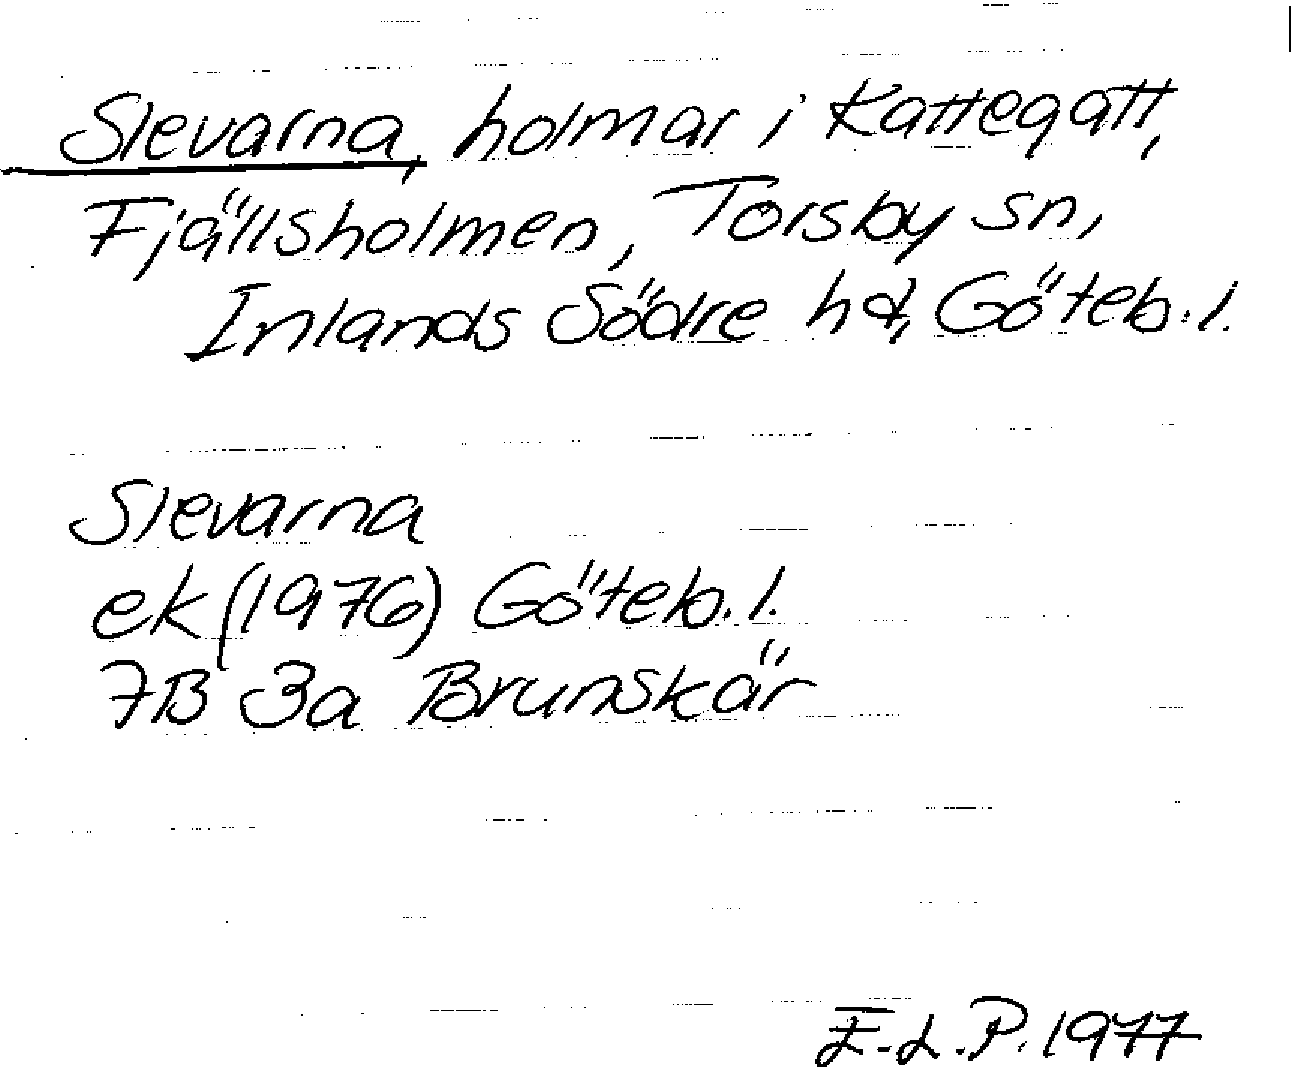 Slevarna, holmar i Kattegatt,
Fjällsholmen, Torsby sn,
Inlands Södre hd, Göteb. l.
Slevarna
ek (1976) Göteb. l.
7B 3a Brunskär
E.L.P. 1977